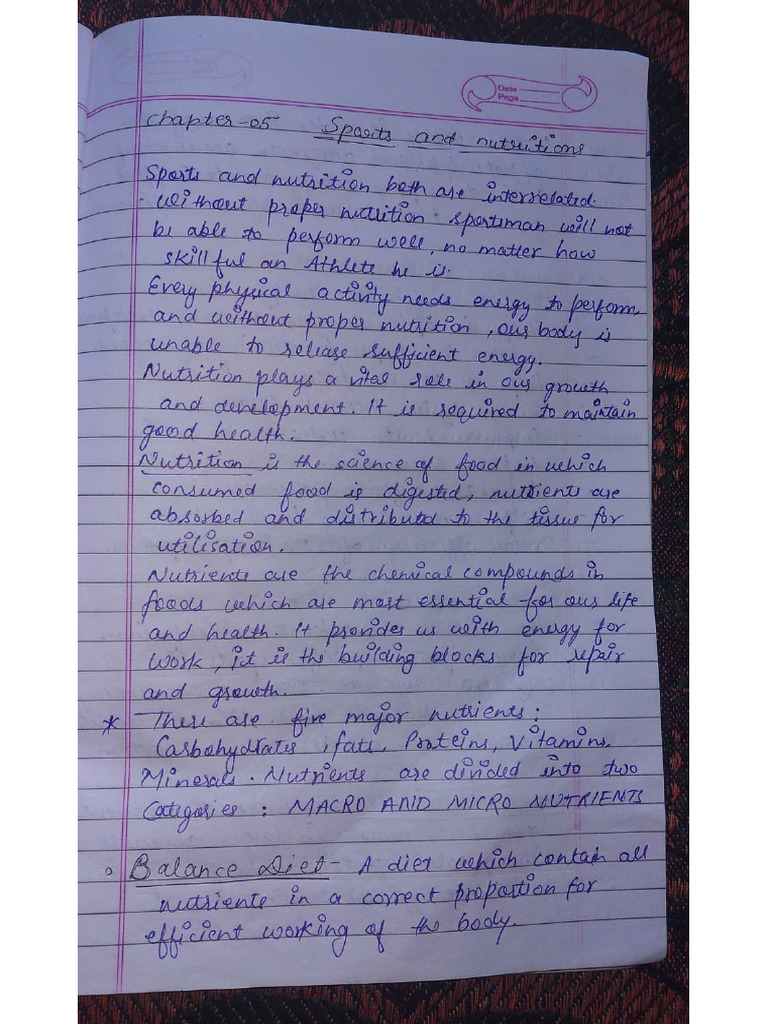 Date
Page
Chapter-05 Sports and nutritions
Sports and nutrition both are interrelated.
without proper nutrition sportsman will not
be able to perform well, no matter how
skillful an Athlete he is.
Every physical activity needs energy to perform
and without proper nutrition, our body is
unable to release sufficient energy.
Nutrition plays a vital role in our growth
and development. It is required to maintain
good health.
Nutrition is the science of food in which
consumed food is digested, nutrients are
absorbed and distributed to the tissue for
utilisation.
Nutrients are the chemical compounds in
foods which are most essential for our life
and health. It provides us with energy for
work, it is the building blocks for repair
and growth.
* There are five major nutrients:
Carbohydrates, fats, Proteins, Vitamins,
Minerals. Nutrients are divided into two
Categories: MACRO AND MICRO NUTRIENTS
Balance Diet- A diet which contain all
nutrients in a correct proportion for
efficient working of the body.